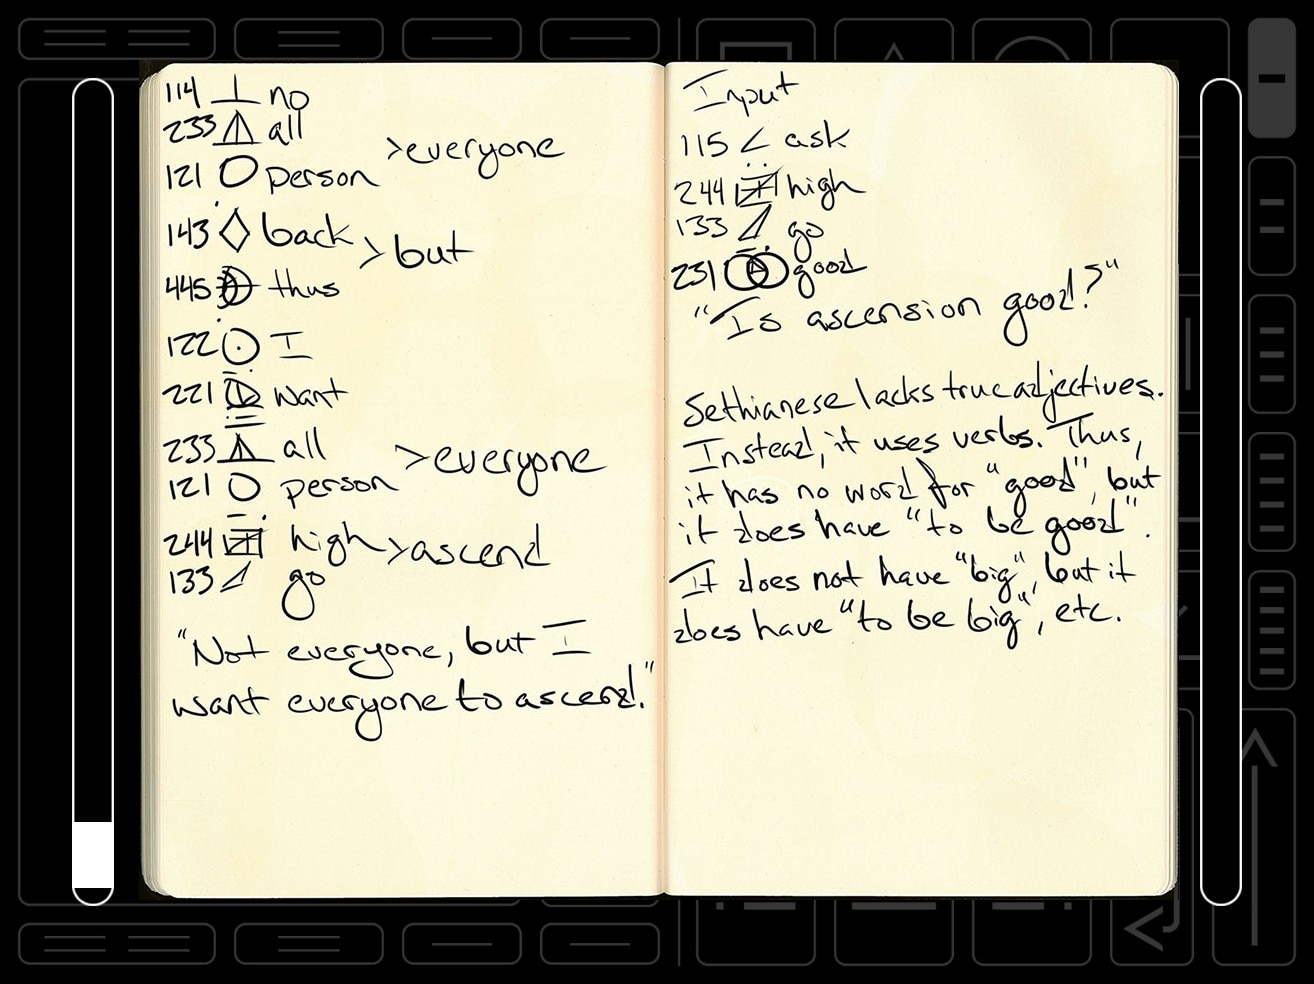 114 no
233 all
>everyone
121 person
143 back
>but
445 thus
122 I
221 want
233 all
>everyone
121 person
244 high >ascend
133 go
"Not everyone, but I
want everyone to ascend."
Input
115 ask
244 high
133 go
231 good
"Is ascension good?"
Sethianese lacks true adjectives.
Instead, it uses verbs. Thus,
it has no word for "good", but
it does have "to be good".
It does not have "big", but it
does have "to be big", etc.